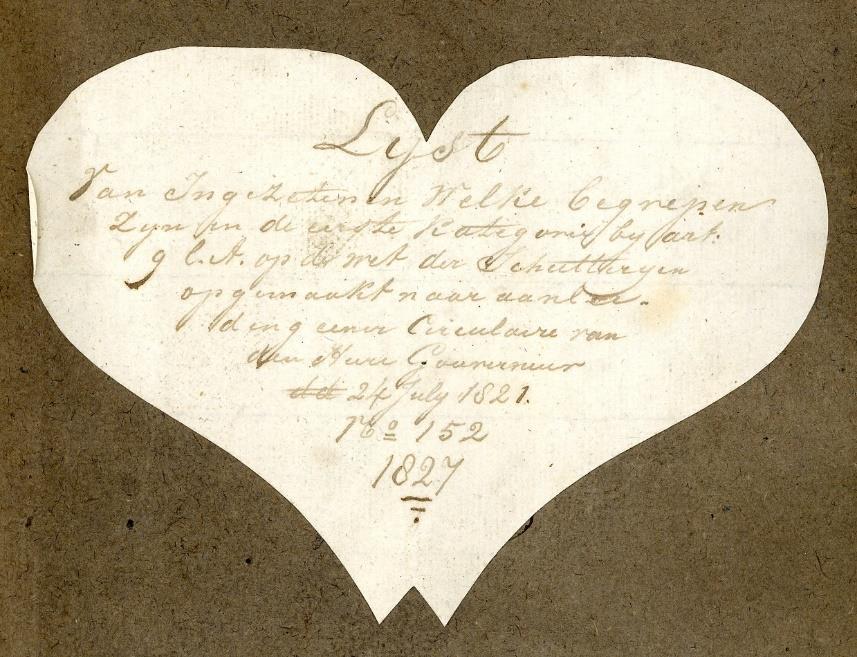 Lyst
Van Ingezetenen Welke begrepen
Zyn in de eerste Kategorie by art.
9 l.A. op de wet der Schutteryen
opgemaakt naar aanlei-
ding eener Circulaire van
den Heer Gouverneur
dd 24 July 1821.
No 152
1827